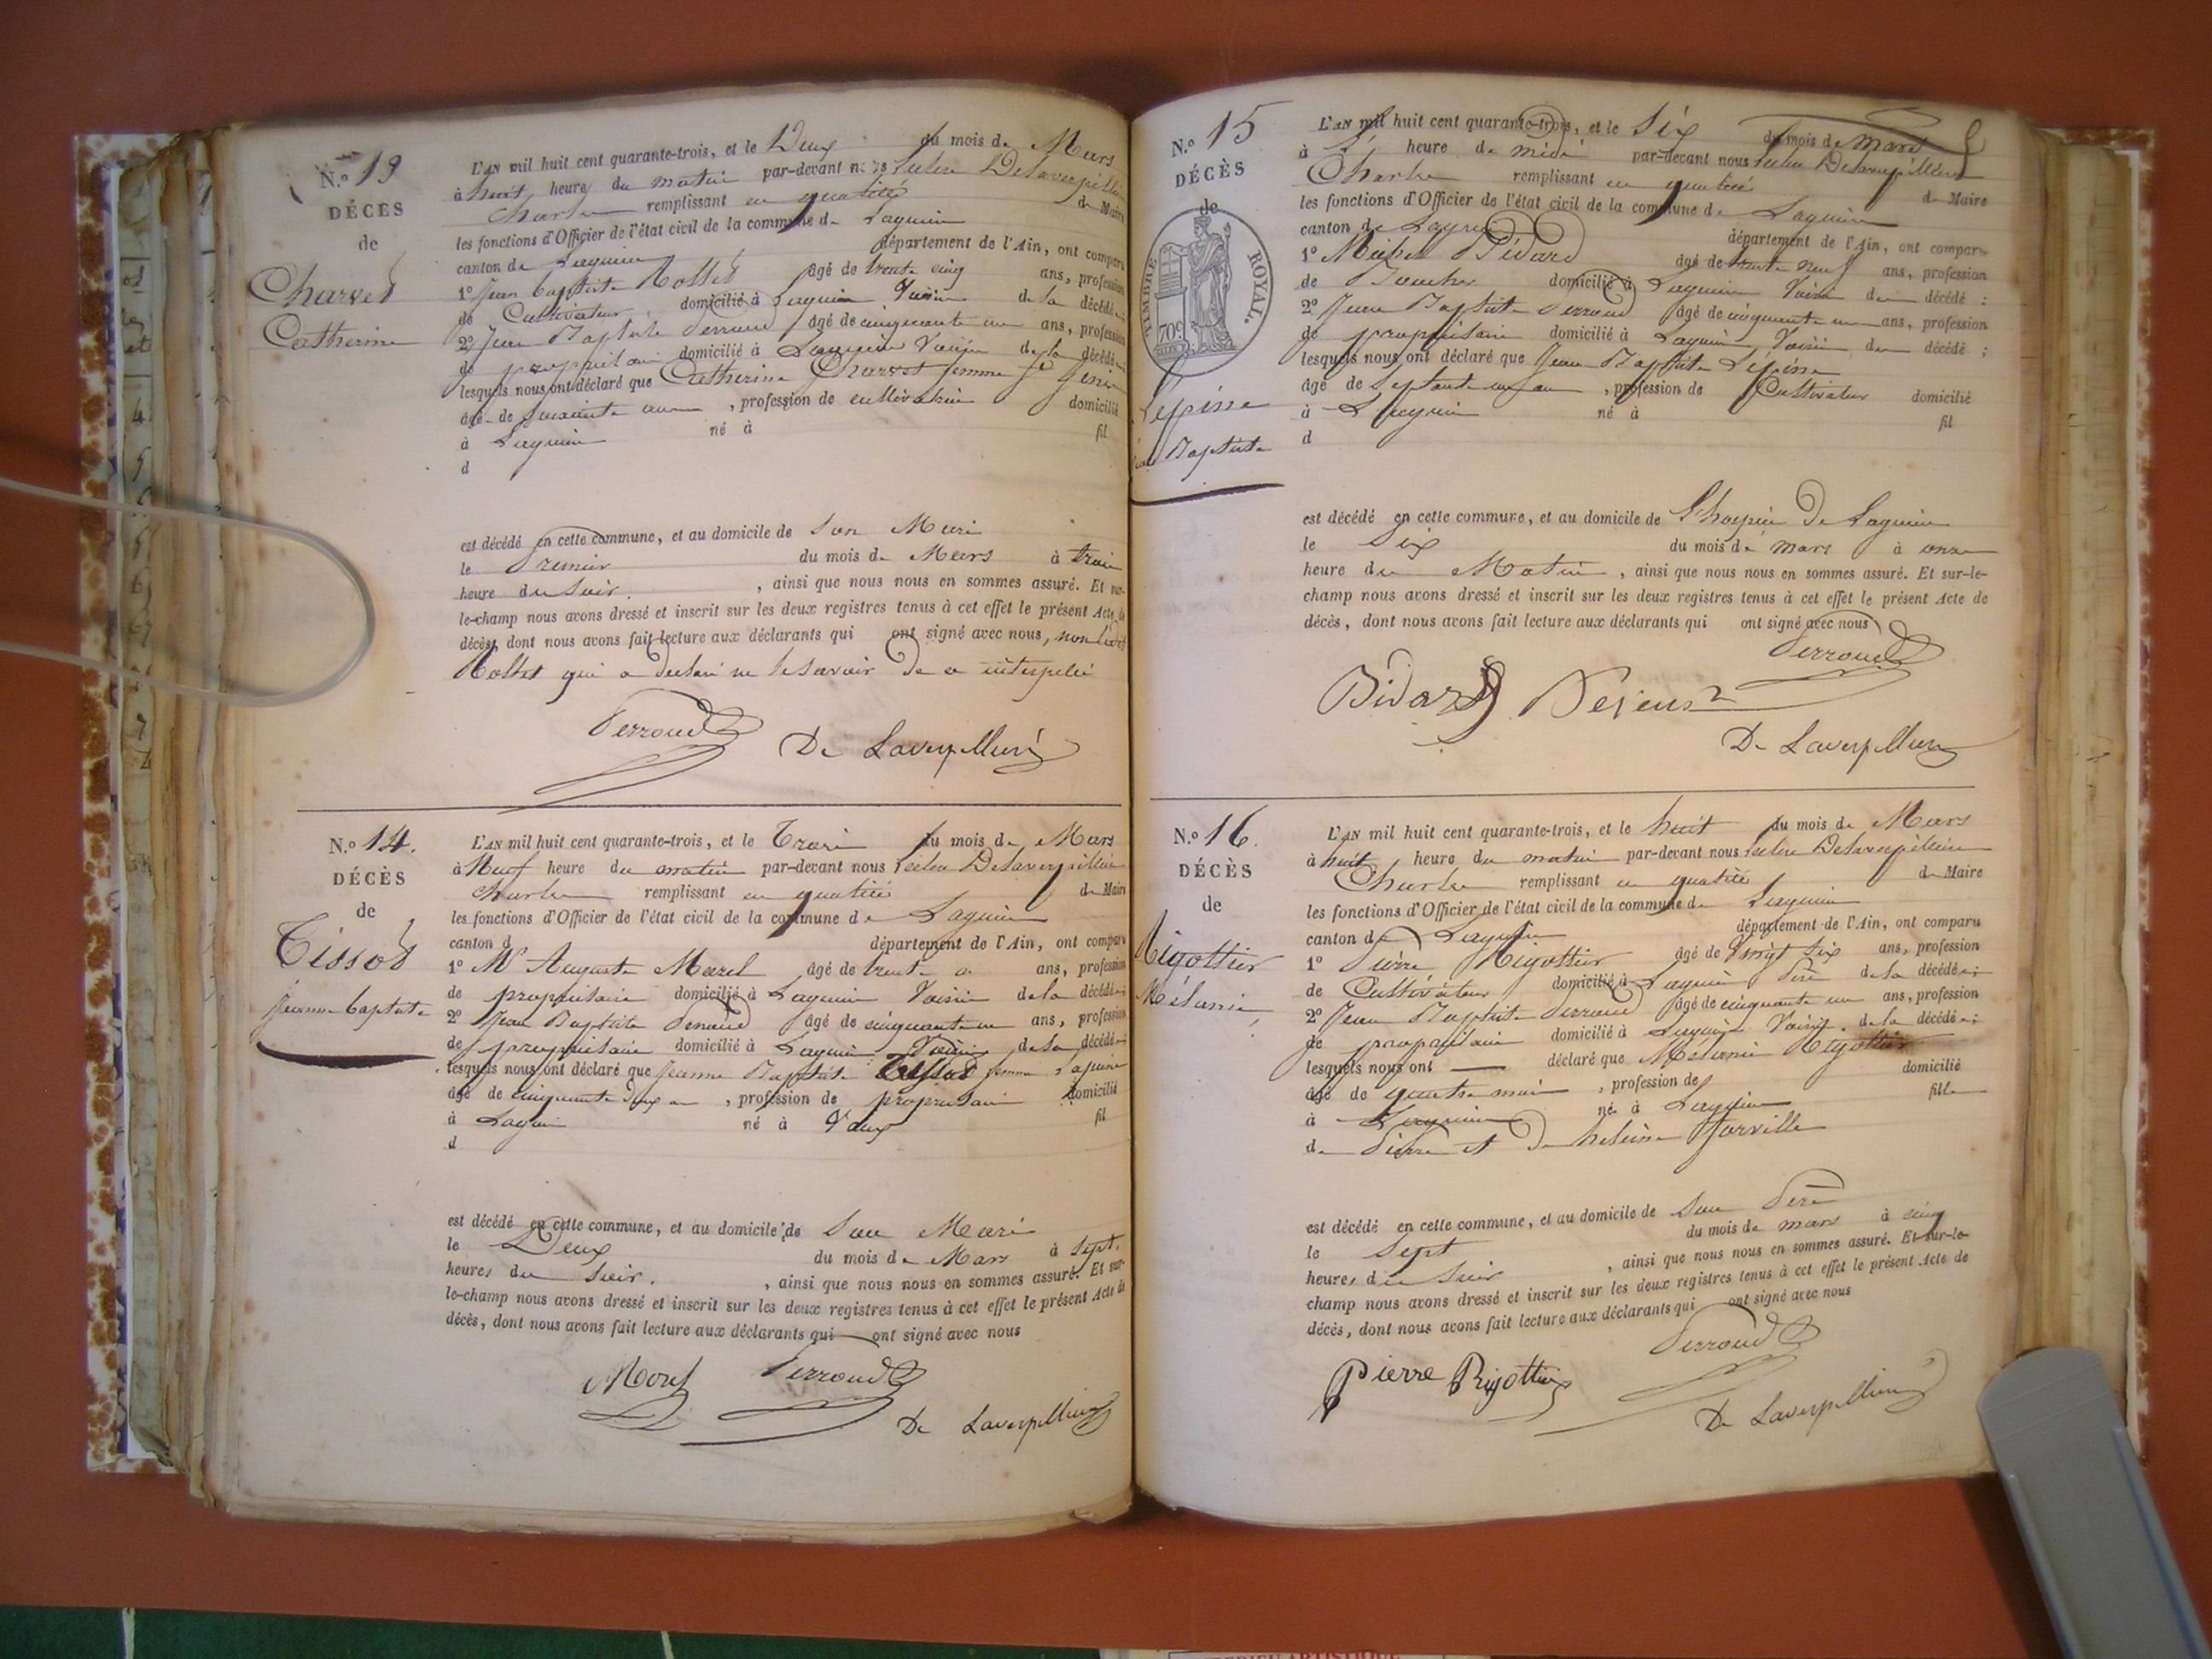 N.o 13
DÉCÈS
de
Charvet
Catherine
L'AN mil huit cent quarante-trois, et le Deux du mois de Mars
à huit heures du matin par-devant nous
Charles remplissant en qualité de Maire
les fonctions d'Officier de l'état civil de la commune de Lagnieu
canton de Lagnieu département de l'Ain, ont comparu
1o Jean baptiste Rollet âgé de trente cinq ans, profession
de Cultivateur domicilié à Lagnieu Voisin de la décédée
2o Jean Baptiste Perroud âgé de cinquante un ans, profession
de propriétaire domicilié à Lagnieu Voisin de la décédée
lesquels nous ont déclaré que Catherine Charvet femme
âgé de soixante ans, profession de cultivatrice domicilié
à Lagnieu né à fil
d
est décédé en cette commune, et au domicile de Son Mari
le Premier du mois de Mars à trois
heure du Soir, ainsi que nous nous en sommes assuré. Et sur-
le-champ nous avons dressé et inscrit sur les deux registres tenus à cet effet le présent Acte de
décès, dont nous avons fait lecture aux déclarants qui ont signé avec nous, non ledit
Rollet qui a déclaré ne le savoir de ce interpellé
Perroud De Laverpillière
N.o 14.
DÉCÈS
de
Tissot
jeanne baptiste
L'AN mil huit cent quarante-trois, et le Trois du mois de Mars
à Neuf heure du matin par-devant nous
Charles remplissant en qualité de Maire
les fonctions d'Officier de l'état civil de la commune de Lagnieu
canton d département de l'Ain, ont comparu
1o Mr Auguste Morel âgé de trente ans, profession
de propriétaire domicilié à Lagnieu Voisin de la décédée
2o Jean Baptiste Perroud âgé de cinquante un ans, profession
de propriétaire domicilié à Lagnieu Voisin de la décédée
lesquels nous ont déclaré que Jeanne Baptiste Tissot femme
âgé de cinquante deux an, profession de propriétaire domicilié
à Lagnieu né à Vaux fil
d
est décédé en cette commune, et au domicile de Son Mari
le Deux du mois de Mars à Sept
heures du Soir, ainsi que nous nous en sommes assuré. Et sur-
le-champ nous avons dressé et inscrit sur les deux registres tenus à cet effet le présent Acte de
décès, dont nous avons fait lecture aux déclarants qui ont signé avec nous
Morel Perroud
De Laverpillière
N.o 15
DÉCÈS
de
TIMBRE ROYAL.
70c.
Lépine
Baptiste
L'AN mil huit cent quarante-trois, et le Six du mois de Mars
à heure de midi par-devant nous
Charles remplissant en qualité de Maire
les fonctions d'Officier de l'état civil de la commune de Lagnieu
canton de Lagnieu département de l'Ain, ont comparu
1o Michel Bidard âgé de trente neuf ans, profession
de Boucher domicilié à Lagnieu Voisin du décédé ;
2o Jean Baptiste Perroud âgé de cinquante un ans, profession
de propriétaire domicilié à Lagnieu Voisin du décédé ;
lesquels nous ont déclaré que Jean Baptiste Lépine
âgé de Septante un an, profession de Cultivateur domicilié
à Lagnieu né à fil
d
est décédé en cette commune, et au domicile de L'hospice De Lagnieu
le Six du mois de mars à onze
heure du Matin, ainsi que nous nous en sommes assuré. Et sur-le-
champ nous avons dressé et inscrit sur les deux registres tenus à cet effet le présent Acte de
décès, dont nous avons fait lecture aux déclarants qui ont signé avec nous
Perroud
Bidard
De Laverpillière
N.o 16.
DÉCÈS
de
Rigottier
Mélanie
L'AN mil huit cent quarante-trois, et le huit du mois de Mars
à huit heure du matin par-devant nous
Charles remplissant en qualité de Maire
les fonctions d'Officier de l'état civil de la commune de Lagnieu
canton de Lagnieu département de l'Ain, ont comparu
1o Pierre Rigottier âgé de Vingt Six ans, profession
de Cultivateur domicilié à Lagnieu Père de la décédée ;
2o Jean Baptiste Perroud âgé de cinquante un ans, profession
de propriétaire domicilié à Lagnieu Voisin de la décédée ;
lesquels nous ont déclaré que Mélanie Rigottier
âgé de quatre mois, profession de domicilié
à Lagnieu né à Lagnieu fille
de Pierre et De
est décédé en cette commune, et au domicile de Son Père
le Sept du mois de mars à cinq
heures du Soir, ainsi que nous nous en sommes assuré. Et sur-le-
champ nous avons dressé et inscrit sur les deux registres tenus à cet effet le présent Acte de
décès, dont nous avons fait lecture aux déclarants qui ont signé avec nous
Perroud
Pierre Rigottier
De Laverpillière